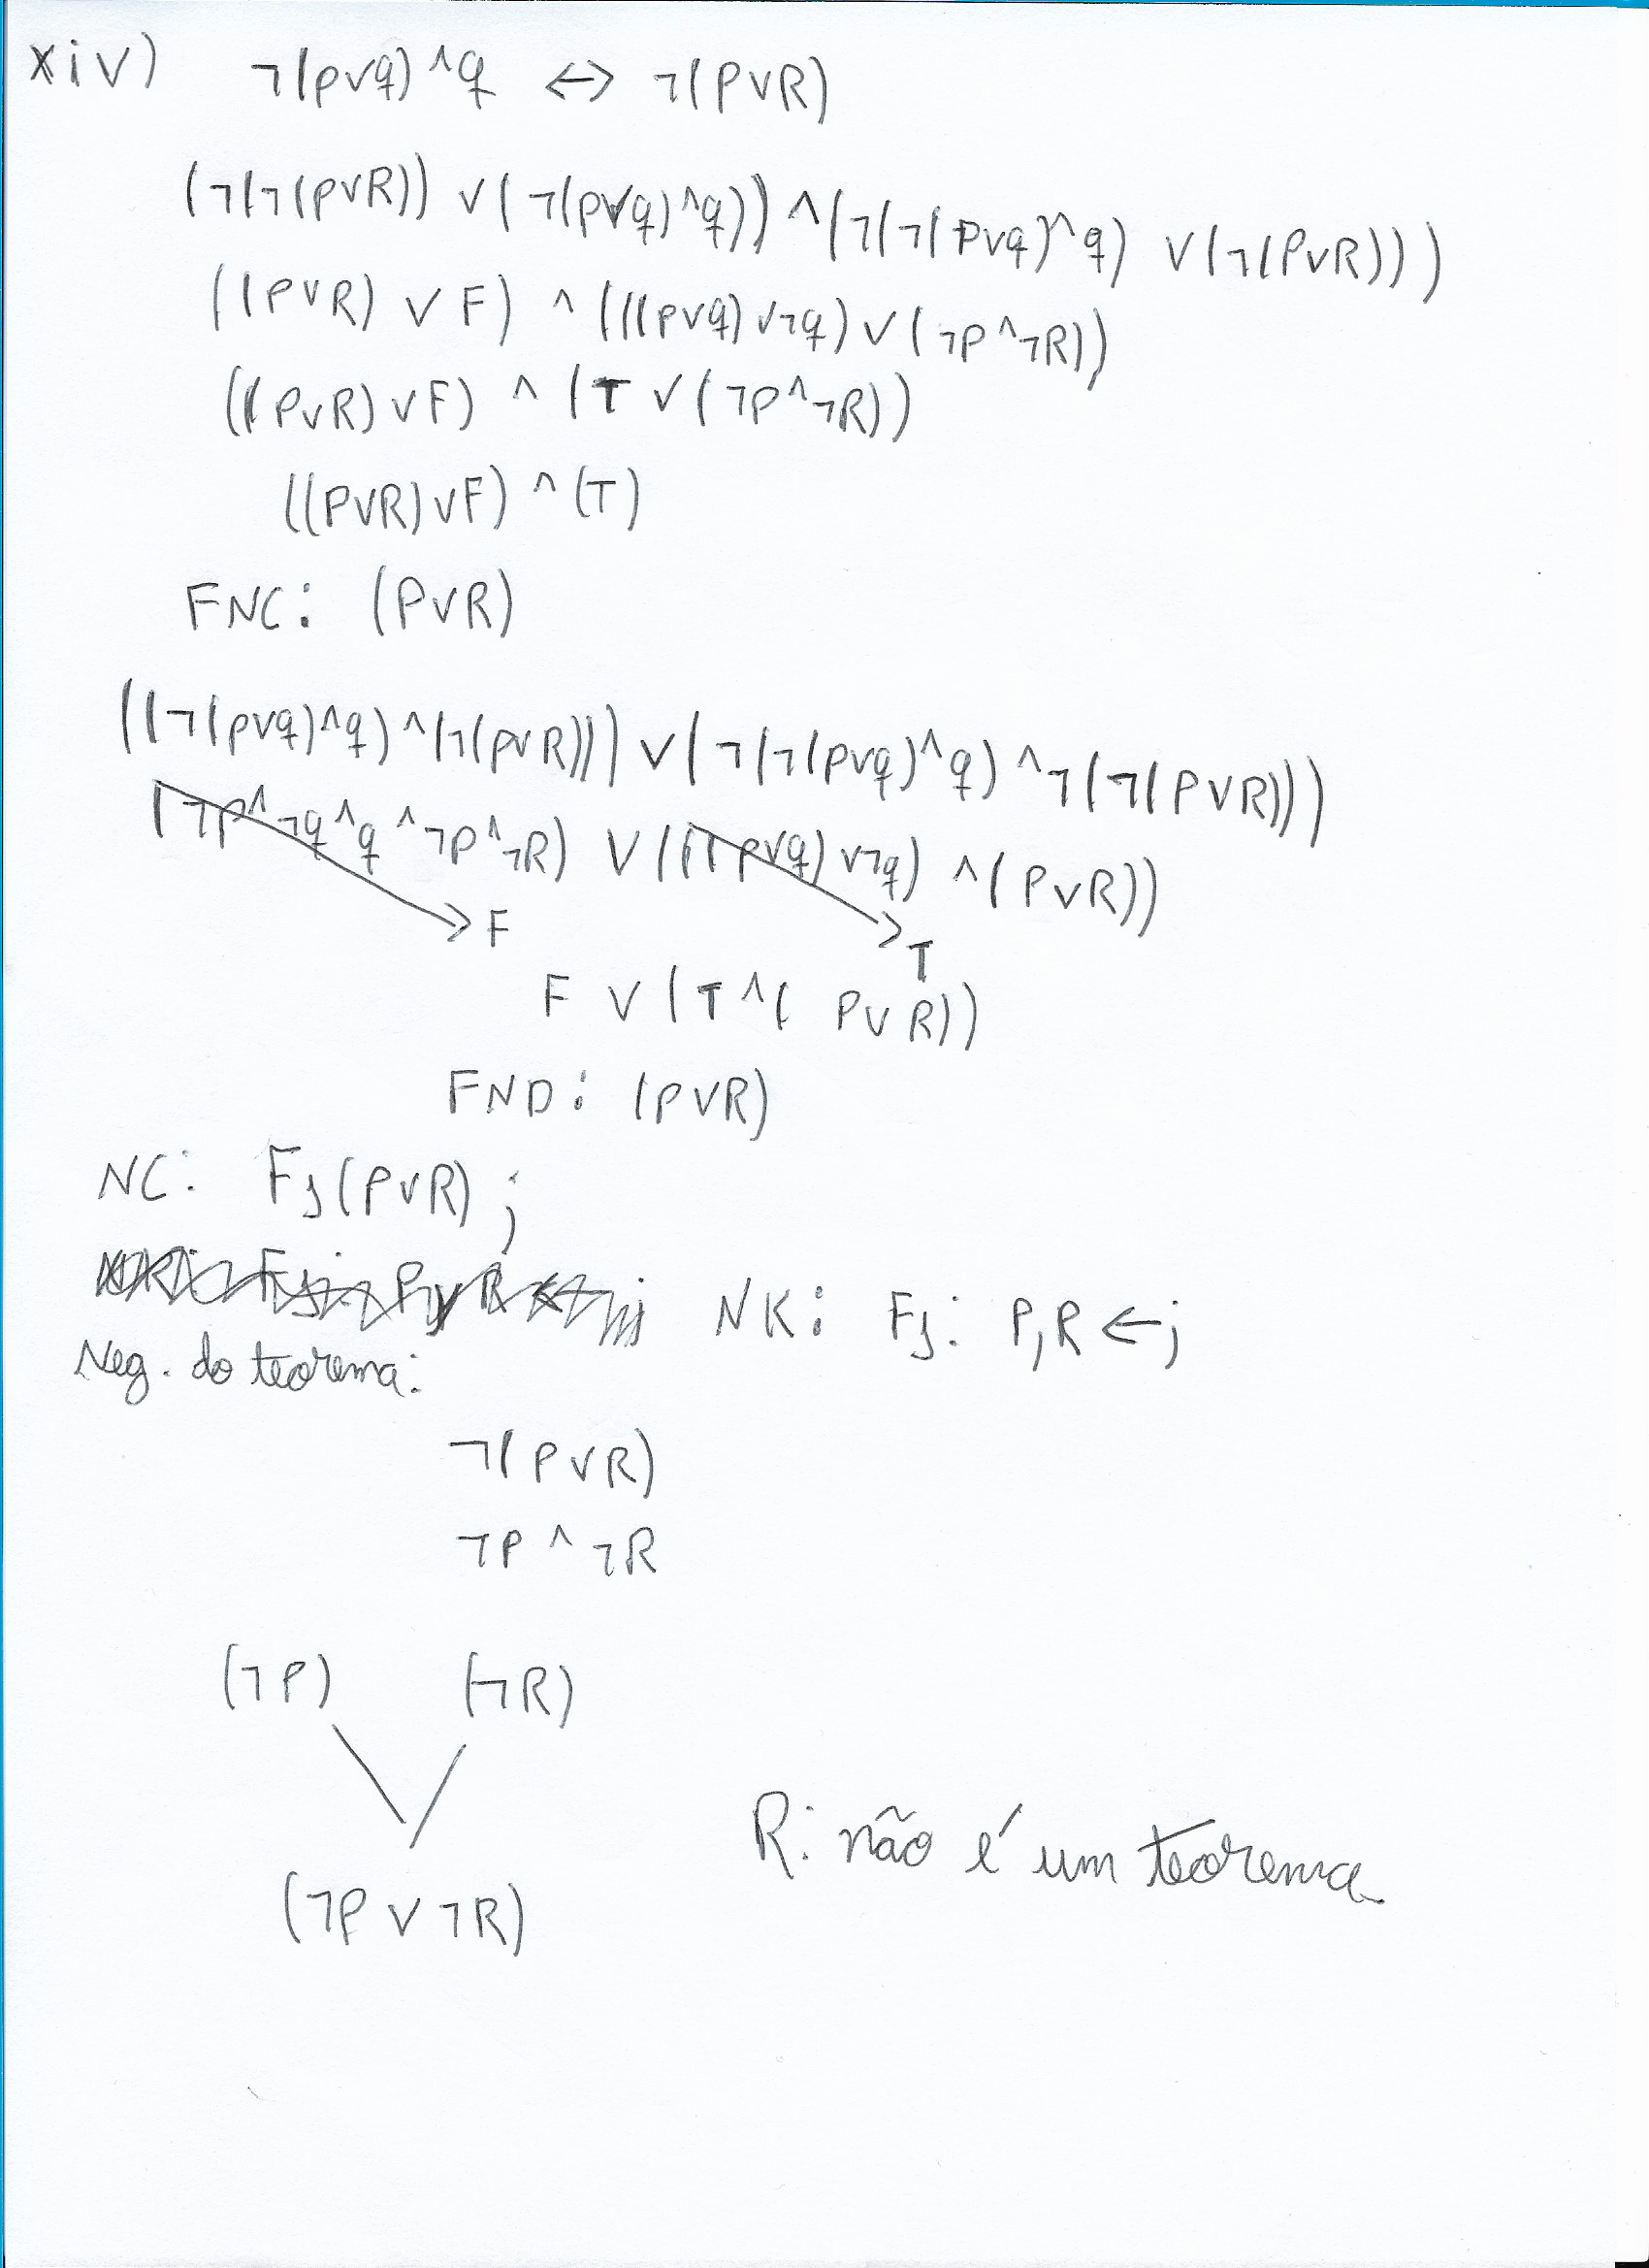 xiv) ¬(p∨q)∧q ↔ ¬(P∨R)
(¬(¬(P∨R)) ∨ (¬(p∨q)∧q)) ∧ (¬(¬(P∨q)∧q) ∨ (¬(P∨R)))
((P∨R) ∨ F) ∧ (((p∨q) ∨¬q) ∨ (¬P∧¬R))
((P∨R) ∨ F) ∧ (T ∨ (¬P∧¬R))
((P∨R) ∨ F) ∧ (T)
FNC: (P∨R)
((¬(p∨q)∧q) ∧ (¬(p∨R))) ∨ (¬(¬(p∨q)∧q) ∧ ¬(¬(P∨R)))
(¬P∧¬q∧q∧¬P∧¬R) ∨ (((p∨q) ∨¬q) ∧ (P∨R))
F T
F ∨ (T ∧ (P∨R))
FND: (P∨R)
NC: FJ(P∨R);
NK: FJ: P,R ←;
Neg. do teorema:
¬(P∨R)
¬P ∧ ¬R
(¬P) (¬R)
(¬P ∨ ¬R)
R: não é um teorema.